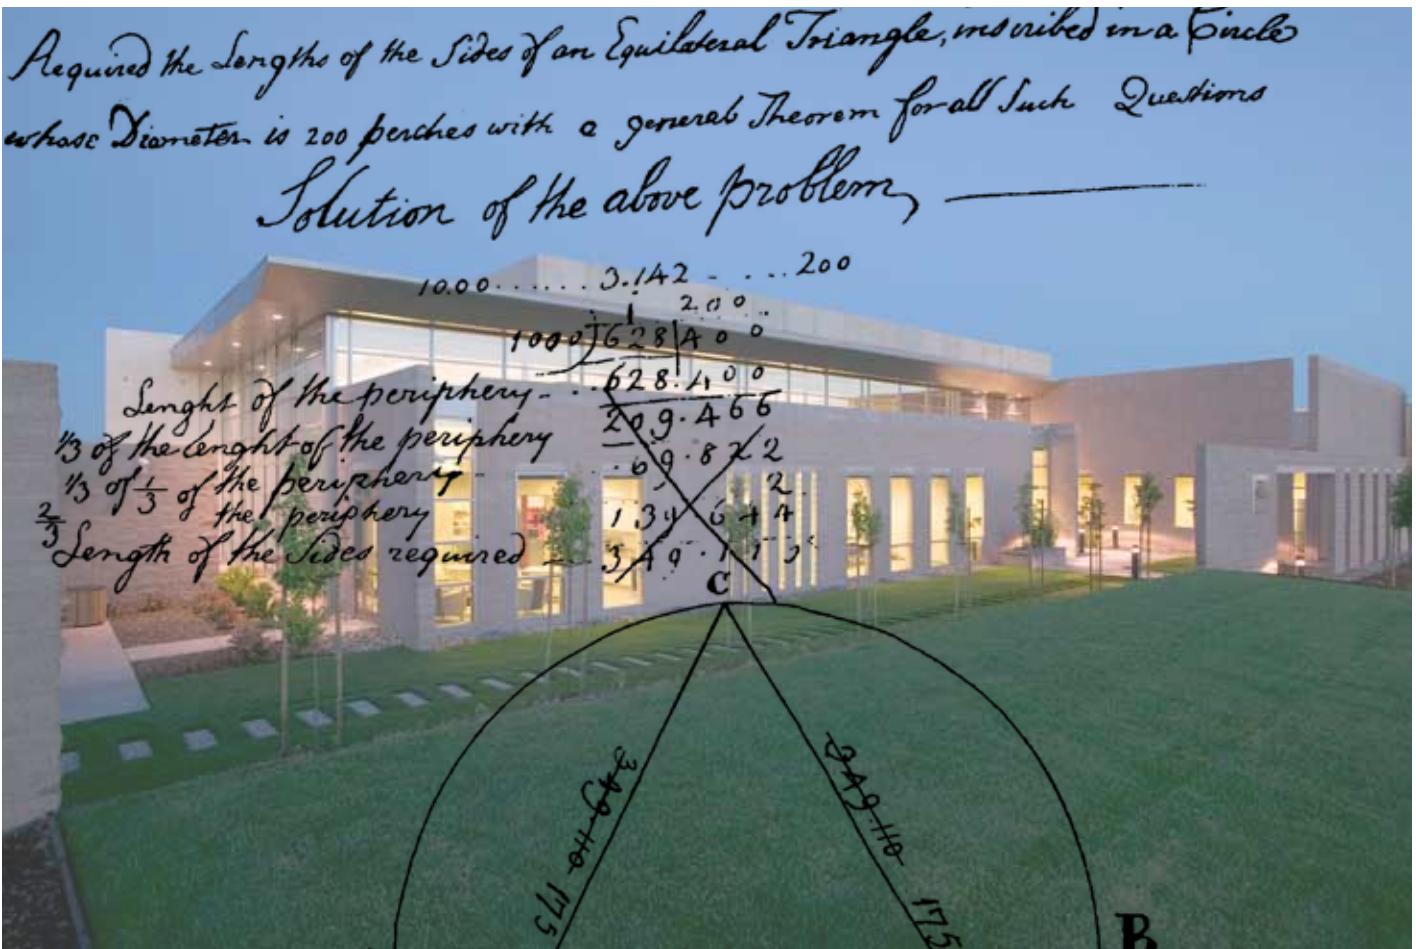 Required the Lengths of the Sides of an Equilateral Triangle, inscribed in a Circle
whose Diameter is 200 perches with a general Theorem for all Such Questions
Solution of the above problem,
10.00...... 3.142 - ....200
1 200
1000)628|400
Lenght of the periphery - . . 628.400
1/3 of the lenght of the periphery 209.466
1/3 of 1/3 of the periphery . . 69.822
2
2/3 the periphery 139.644
Length of the Sides required
C
349.110 175
349.110 175
B